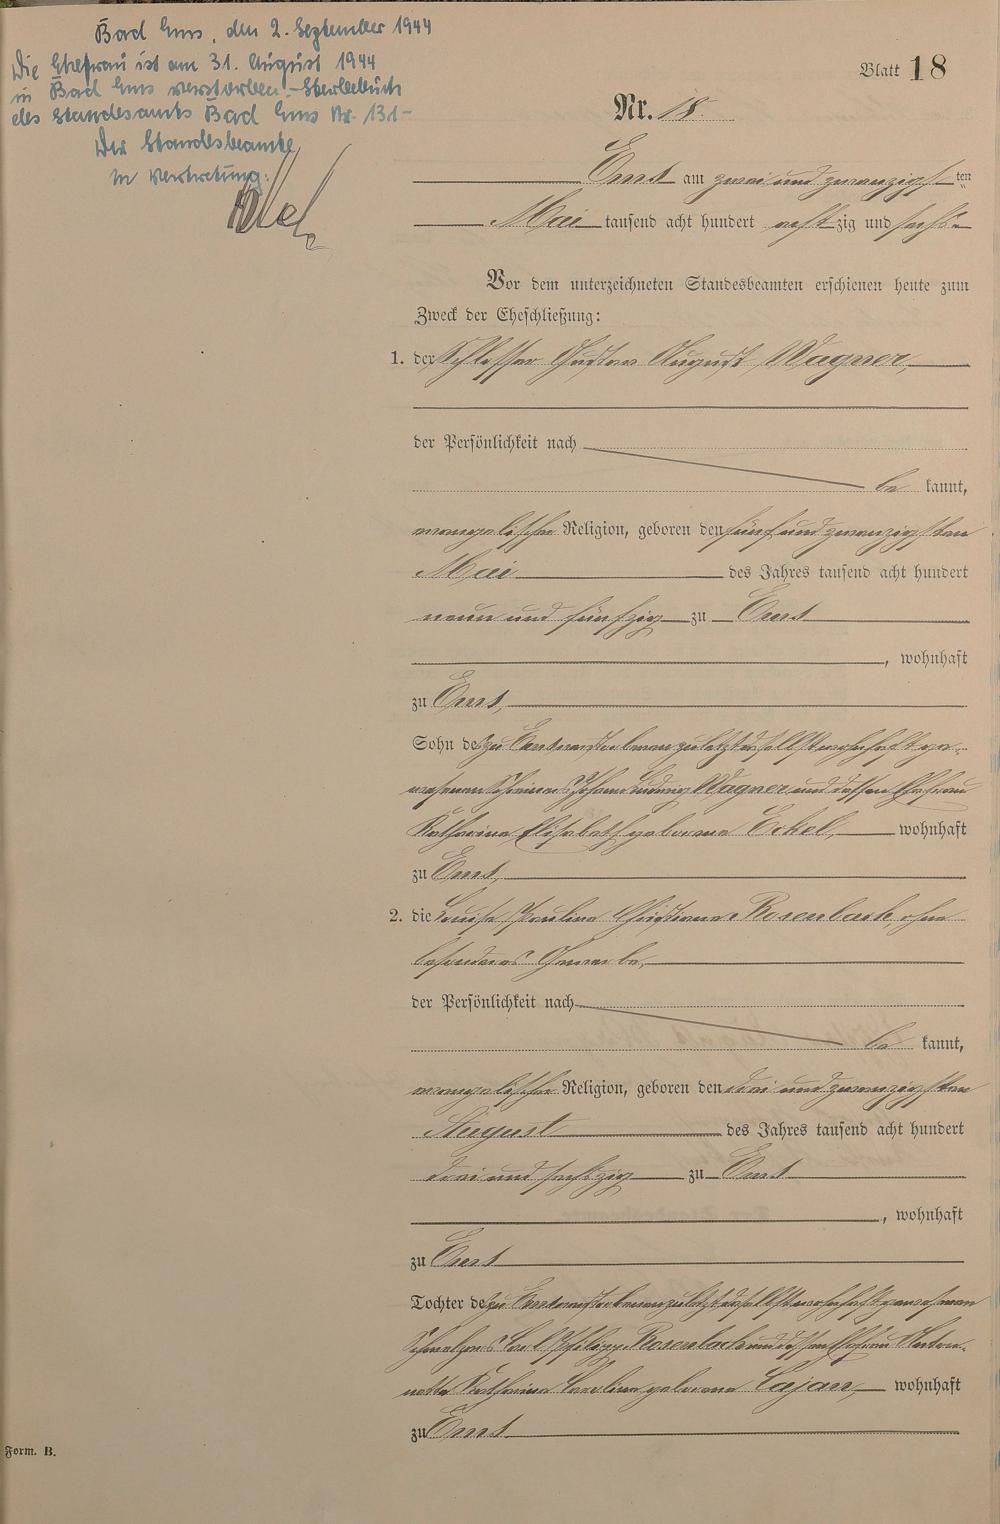 Bad Ems, den 2. September 1944
Die Ehefrau ist am 31. August 1944
in Bad Ems verstorben. – Sterbebuch
des Standesamts Bad Ems Nr. 131 –
Der Standesbeamte
In Vertretung:
Blatt 18
Nr. 18.
Ems am zwei und zwanzigsten
Mai tausend acht hundert achtzig und sechs
Vor dem unterzeichneten Standesbeamten erschienen heute zum
Zweck der Eheschließung:
1. der Schlosser Gustav August Wagner,
der Persönlichkeit nach
be kannt,
evangelischer Religion, geboren den fünf und zwanzigsten
Mai des Jahres tausend acht hundert
neun und fünfzig zu Ems
, wohnhaft
zu Ems,
Sohn des zu Ems verstorbenen zuletzt daselbst wohnhaft ge-
wesenen Schreiners Johann Ludwig Wagner und dessen Ehefrau
Katharina Elisabeth geborene Eckel, wohnhaft
zu Ems,
2. die Louise Pauline Christiane Rosenbach, ohne
besonderes Gewerbe,
der Persönlichkeit nach
be kannt,
evangelischer Religion, geboren den drei und zwanzigsten
August des Jahres tausend acht hundert
drei und sechszig zu Ems
, wohnhaft
zu Ems
Tochter des zu Ems verstorbenen zuletzt daselbst wohnhaft gewesenen
Carl Philipp Rosenbach und dessen Ehefrau Anton-
nette Katharina Caroline geborene Cajan, wohnhaft
zu Ems
Form. B.